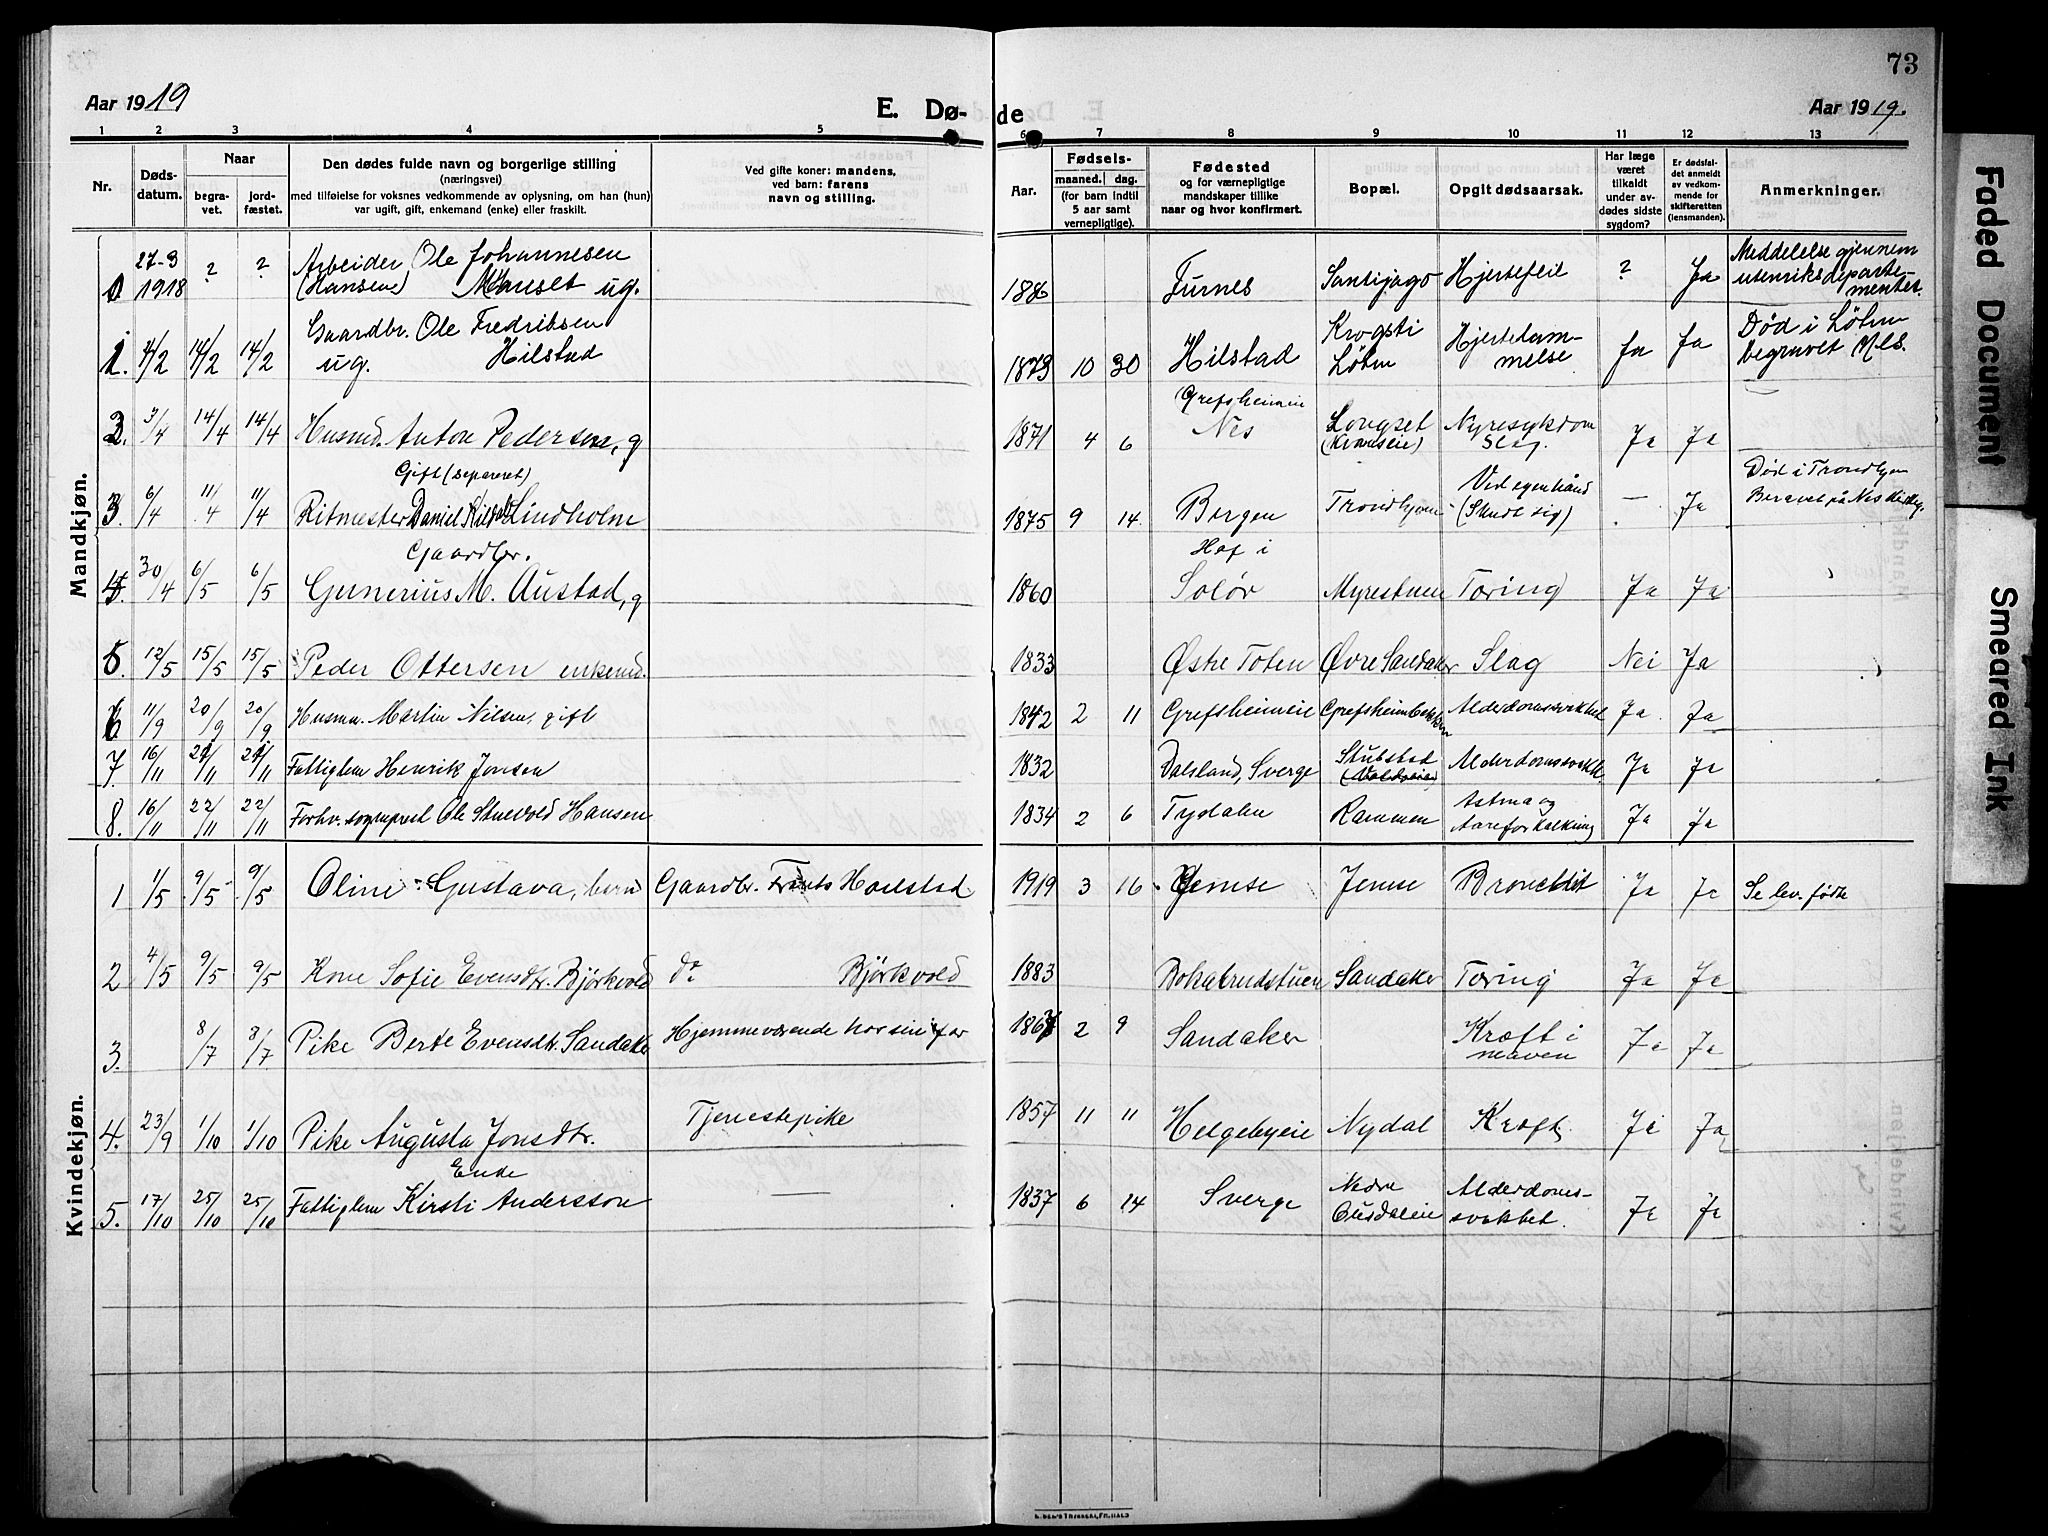 73
Aar 1919
E. Dø-
de
Aar 1919.
1 2 3 4 5 6 7 8 9 10 11 12 13
Nr.
Døds-
datum.
Naar
begra-
vet.
jord-
fæstet.
Den dødes fulde navn og borgerlige stilling
(næringsvei)
med tilføielse for voksnes vedkommende av oplysning, om han (hun)
var ugift, gift, enkemand (enke) eller fraskilt.
Ved gifte koner: mandens,
ved barn: farens
navn og stilling.
Aar.
Fødsels-
maaned. dag.
(for barn indtil
5 aar samt
vernepligtige).
Fødested
og for værnepligtige
mandskaper tillike
naar og hvor konfirmert.
Bopæl.
Opgit dødsaarsak.
Har læge
været
tilkaldt
under av-
dødes sidste
sygdom?
Er dødsfal-
det anmeldt
av vedkom-
mende for
skifteretten
(lensmanden).
Anmerkninger.
Mandkjøn.
27-3 1918 ? ? Arbeider Ole Johannesen
(Hansen) ug.
Furnes Santijago Hjertefeil ? Ja Meddelelse gjennem
utenriksdeparte-
mentet.
1. 4/2 14/2 14/2 Gaardbr. Ole Fredriksen
ug. Hilstad
1873 10 30 Hilstad Krogsti
Løten Hjertelam-
melse Ja Ja Død i Løten
begravet Nes.
2. 3/4 14/4 14/4 Husmd. Anton Pedersen, g
1871 4 6 Grefsheimeie
Nes Longset Nyresykdom
Slag. Ja Ja
3. 6/4 11/4 11/4 Gift (separert)
Ritmester Daniel Lindholm
1875 9 14 Bergen Trondhjem Ved egenhånd
(Skudt sig) — Ja Død i Trondhjem
4. 30/4 6/5 6/5 Gaardbr.
Gunerius M. Austad, g
1860 Hof i
Solør Myrestuen Tæring Ja Ja
5 12/5 15/5 15/5 Peder Ottersen enkemd.
1833 Østre Toten Øvre Sandaker Slag Nei Ja
6 11/9 20/9 20/9 Husmn. Martin Nilsen, gift
1842 2 11 Grefsheimeie Grefsheimbakken Alderdomssvækket Ja Ja
7 16/11 Fattiglem Henrik Jonsen
1832 Dalsland, Sverge Stubstad Alderdomssvækk. Ja Ja
8. 16/11 22/11 22/11 Forhv. sogneprest Ole Stuevold Hansen
1834 2 6 Tydalen Rammen Astma og
Aareforkalkning Ja Ja
Kvindekjøn.
1 1/5 9/5 9/5 Oline Gustava, barn Gaardbr. Frants Hoelstad
1919 3 16 Jemse Jemse Bronchit Ja Ja Se lev. fødte
2 4/5 9/5 9/5 Kone Sofie Evensdtr. Björkvold do Björkvold
1883 Bokabrudstuen Sandaker Tæring Ja Ja
3. 8/7 8/7 Pike Berte Evensdtr. Sandaker Hjemmeværende hos sin far
2 9 Sandaker Kræft i
maven Ja Ja
4. 23/9 1/10 1/10 Pike Augusta Jonsdtr. Tjenestepike
1857 11 11 Helgebyeie Nydal Kræft Ja Ja
5. 17/10 25/10 25/10 Enke
Fattiglem Kirsti Andersson —
1837 6 14 Sverge Nedre Alderdoms-
svækket. Ja Ja
Faded Document
Smeared Ink